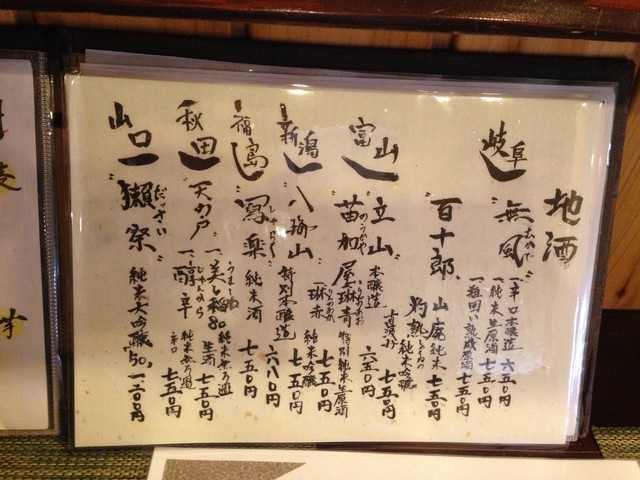 地酒
岐阜
"無風"
むかで
一、辛口本醸造 六五〇円
一、純米生原酒 七五〇円
一、粗囲い熟成原酒 七五〇円
"百十郎"
山廃純米 七五〇円
灼熱
純米大吟醸 七五〇円
富山
"立山"
本醸造
六五〇円
"苗加屋"
のうかや
琳青
りんのあお
特別純米生原酒 七五〇円
琳赤
純米吟醸 七五〇円
新潟
"八海山"
特別本醸造 六八〇円
福島
"寫楽"
しゃらく
純米酒 七五〇円
秋田
"天の戸"
一、美稲80
うましね
純米無ろ過生酒 七五〇円
一、醇辛
じゅんから
純米無ろ過辛口 七五〇円
山口
"獺祭"
だっさい
純米大吟醸50 一、二〇〇円